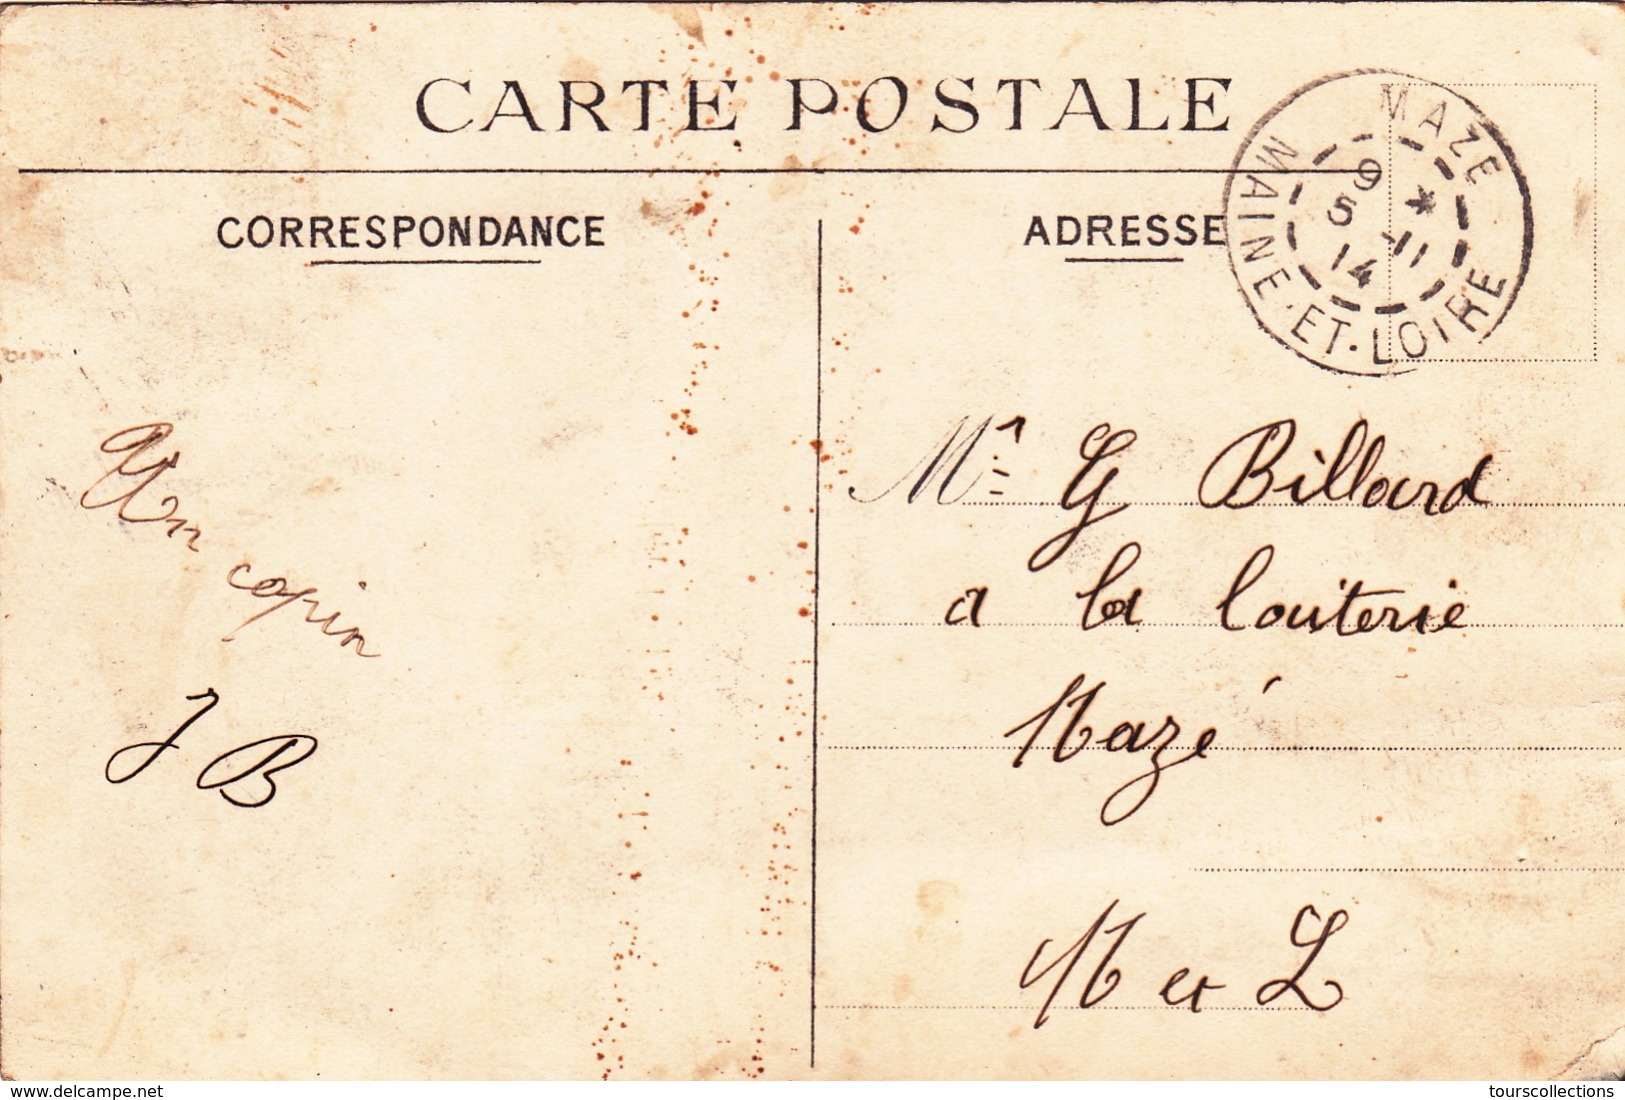 CARTE POSTALE
CORRESPONDANCE
ADRESSE
MAZÉ
9 *
5 -11
14
MAINE-ET-LOIRE
Un
copin
J B
Mr G Billard
a la louiterie
Mazé
M et L
© www.delcampe.net
tourscollections